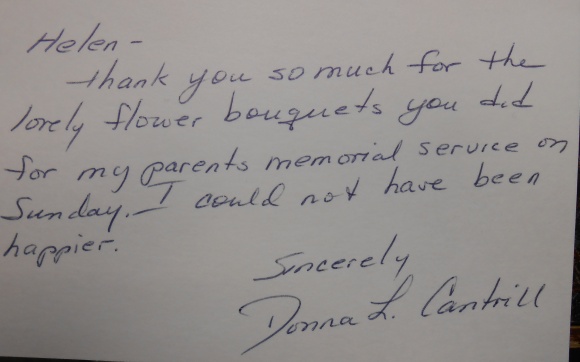 Helen -
thank you so much for the
lovely flower bouquets you did
for my parents memorial service on
Sunday. I could not have been
happier.
Sincerely
Donna L. Cantrill